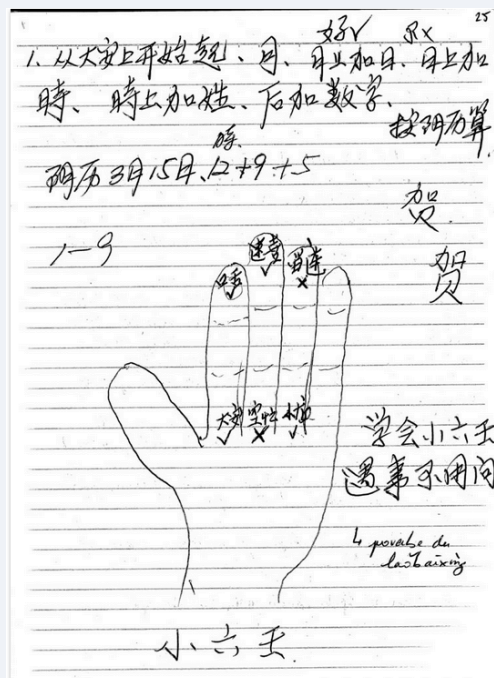 25
好√ 8X
1. 从大安上开始起、月、月上加日、日上加
時、時上加姓、后加数字、
按阴历算
阴历3月15日、12+9+5
贺
贺
1—9
速喜 留连
大安 空亡 小吉
学会小六壬
遇事不用问
↳ proverbe du
laobaixing
小六壬